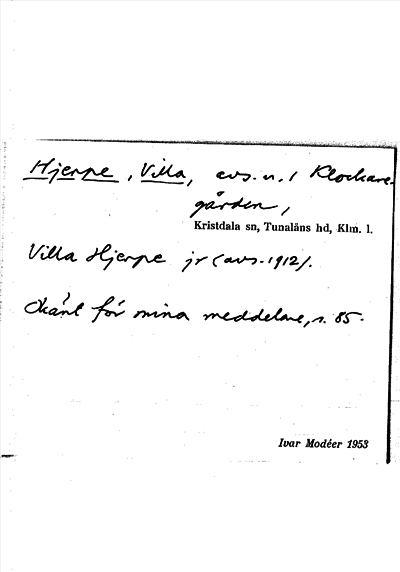 Hjerpe, Villa, avs. u. / Klockare-
gården,
Kristdala sn, Tunaläns hd, Klm. l.
Villa Hjerpe jr (avs. 1912).
Okänt för mina meddelare, s. 85.
Ivar Modéer 1953